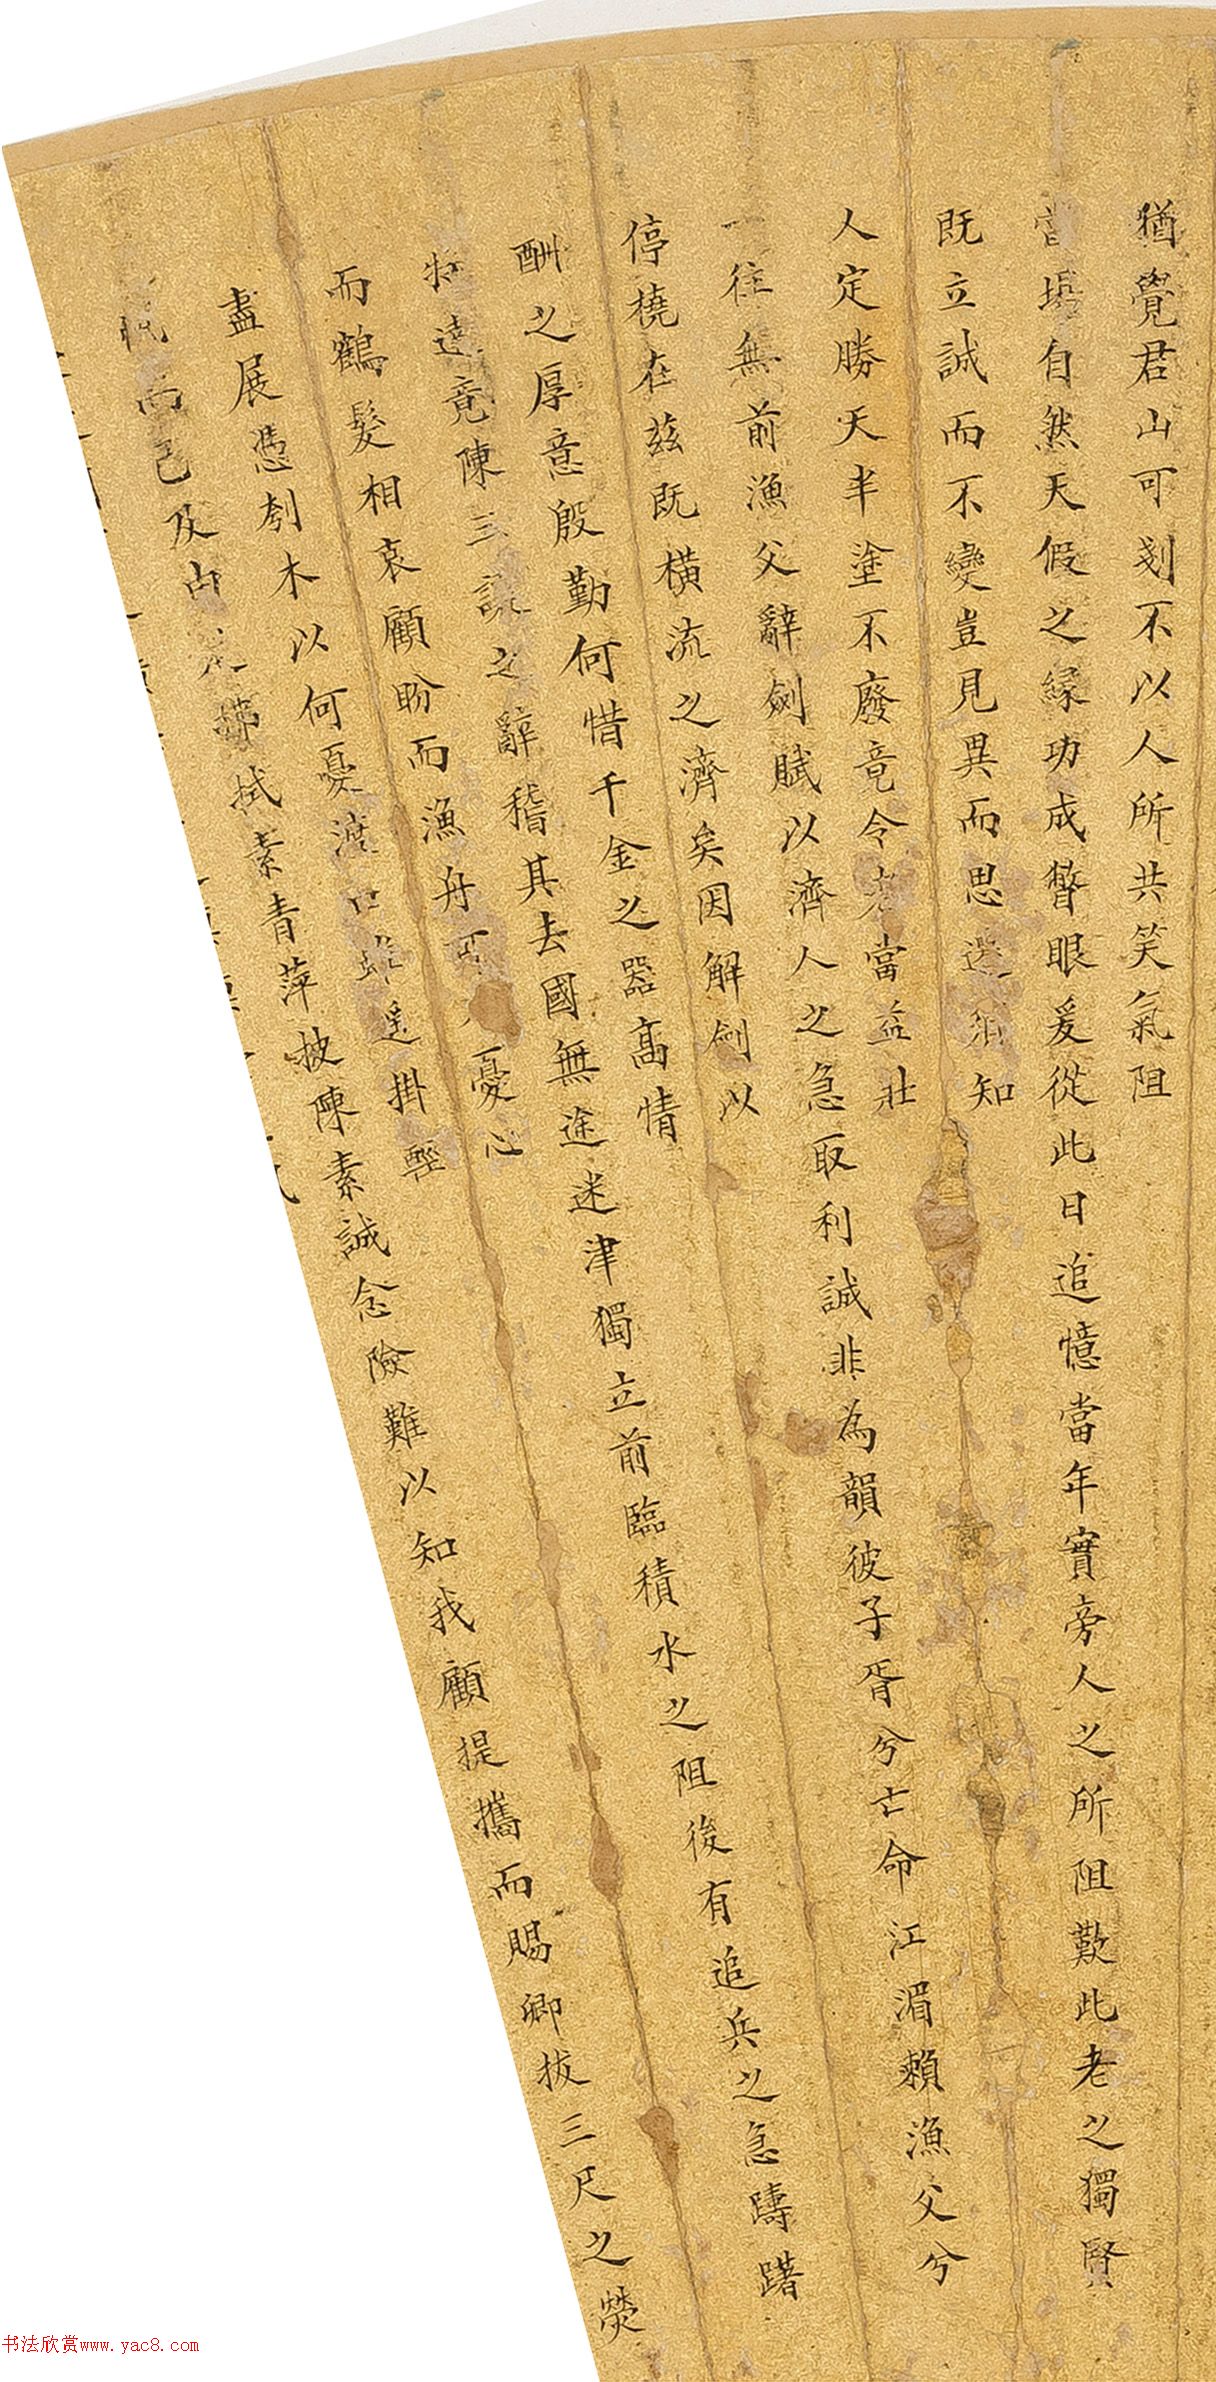 猶覺君山可剗不以人所共笑氣阻
當場自然天假之緣功成瞥眼爰從此日追憶當年實旁人之所阻歎此老之獨賢
既立誠而不變豈見異而思遷須知
人定勝天半塗不廢竟令老當益壯
一往無前漁父辭劍賦以濟人之急取利誠非為韻彼子胥兮亡命江湄賴漁父兮
停橈在茲既橫流之濟矣因解劍以
酬之厚意殷勤何惜千金之器高情
遠竟陳三讓之辭稽其去國無途迷津獨立前臨積水之阻後有追兵之急躊躇
而鶴髮相哀顧盼而漁舟可憂心
盡展憑刳木以何憂渡口遙掛輕
而已及由拂拭素青萍披陳素誠念險難以知我顧提攜而賜卿拔三尺之熒
书法欣赏www.yac8.com